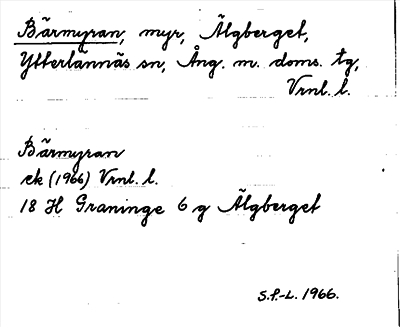 Bärmyran, myr, Älgberget,
Ytterlännäs sn, Ång. m. doms. tg,
Vrnl. l.
Bärmyran
ek (1966) Vrnl. l.
18 H Graninge 6 g Älgberget
S.F.-L. 1966.